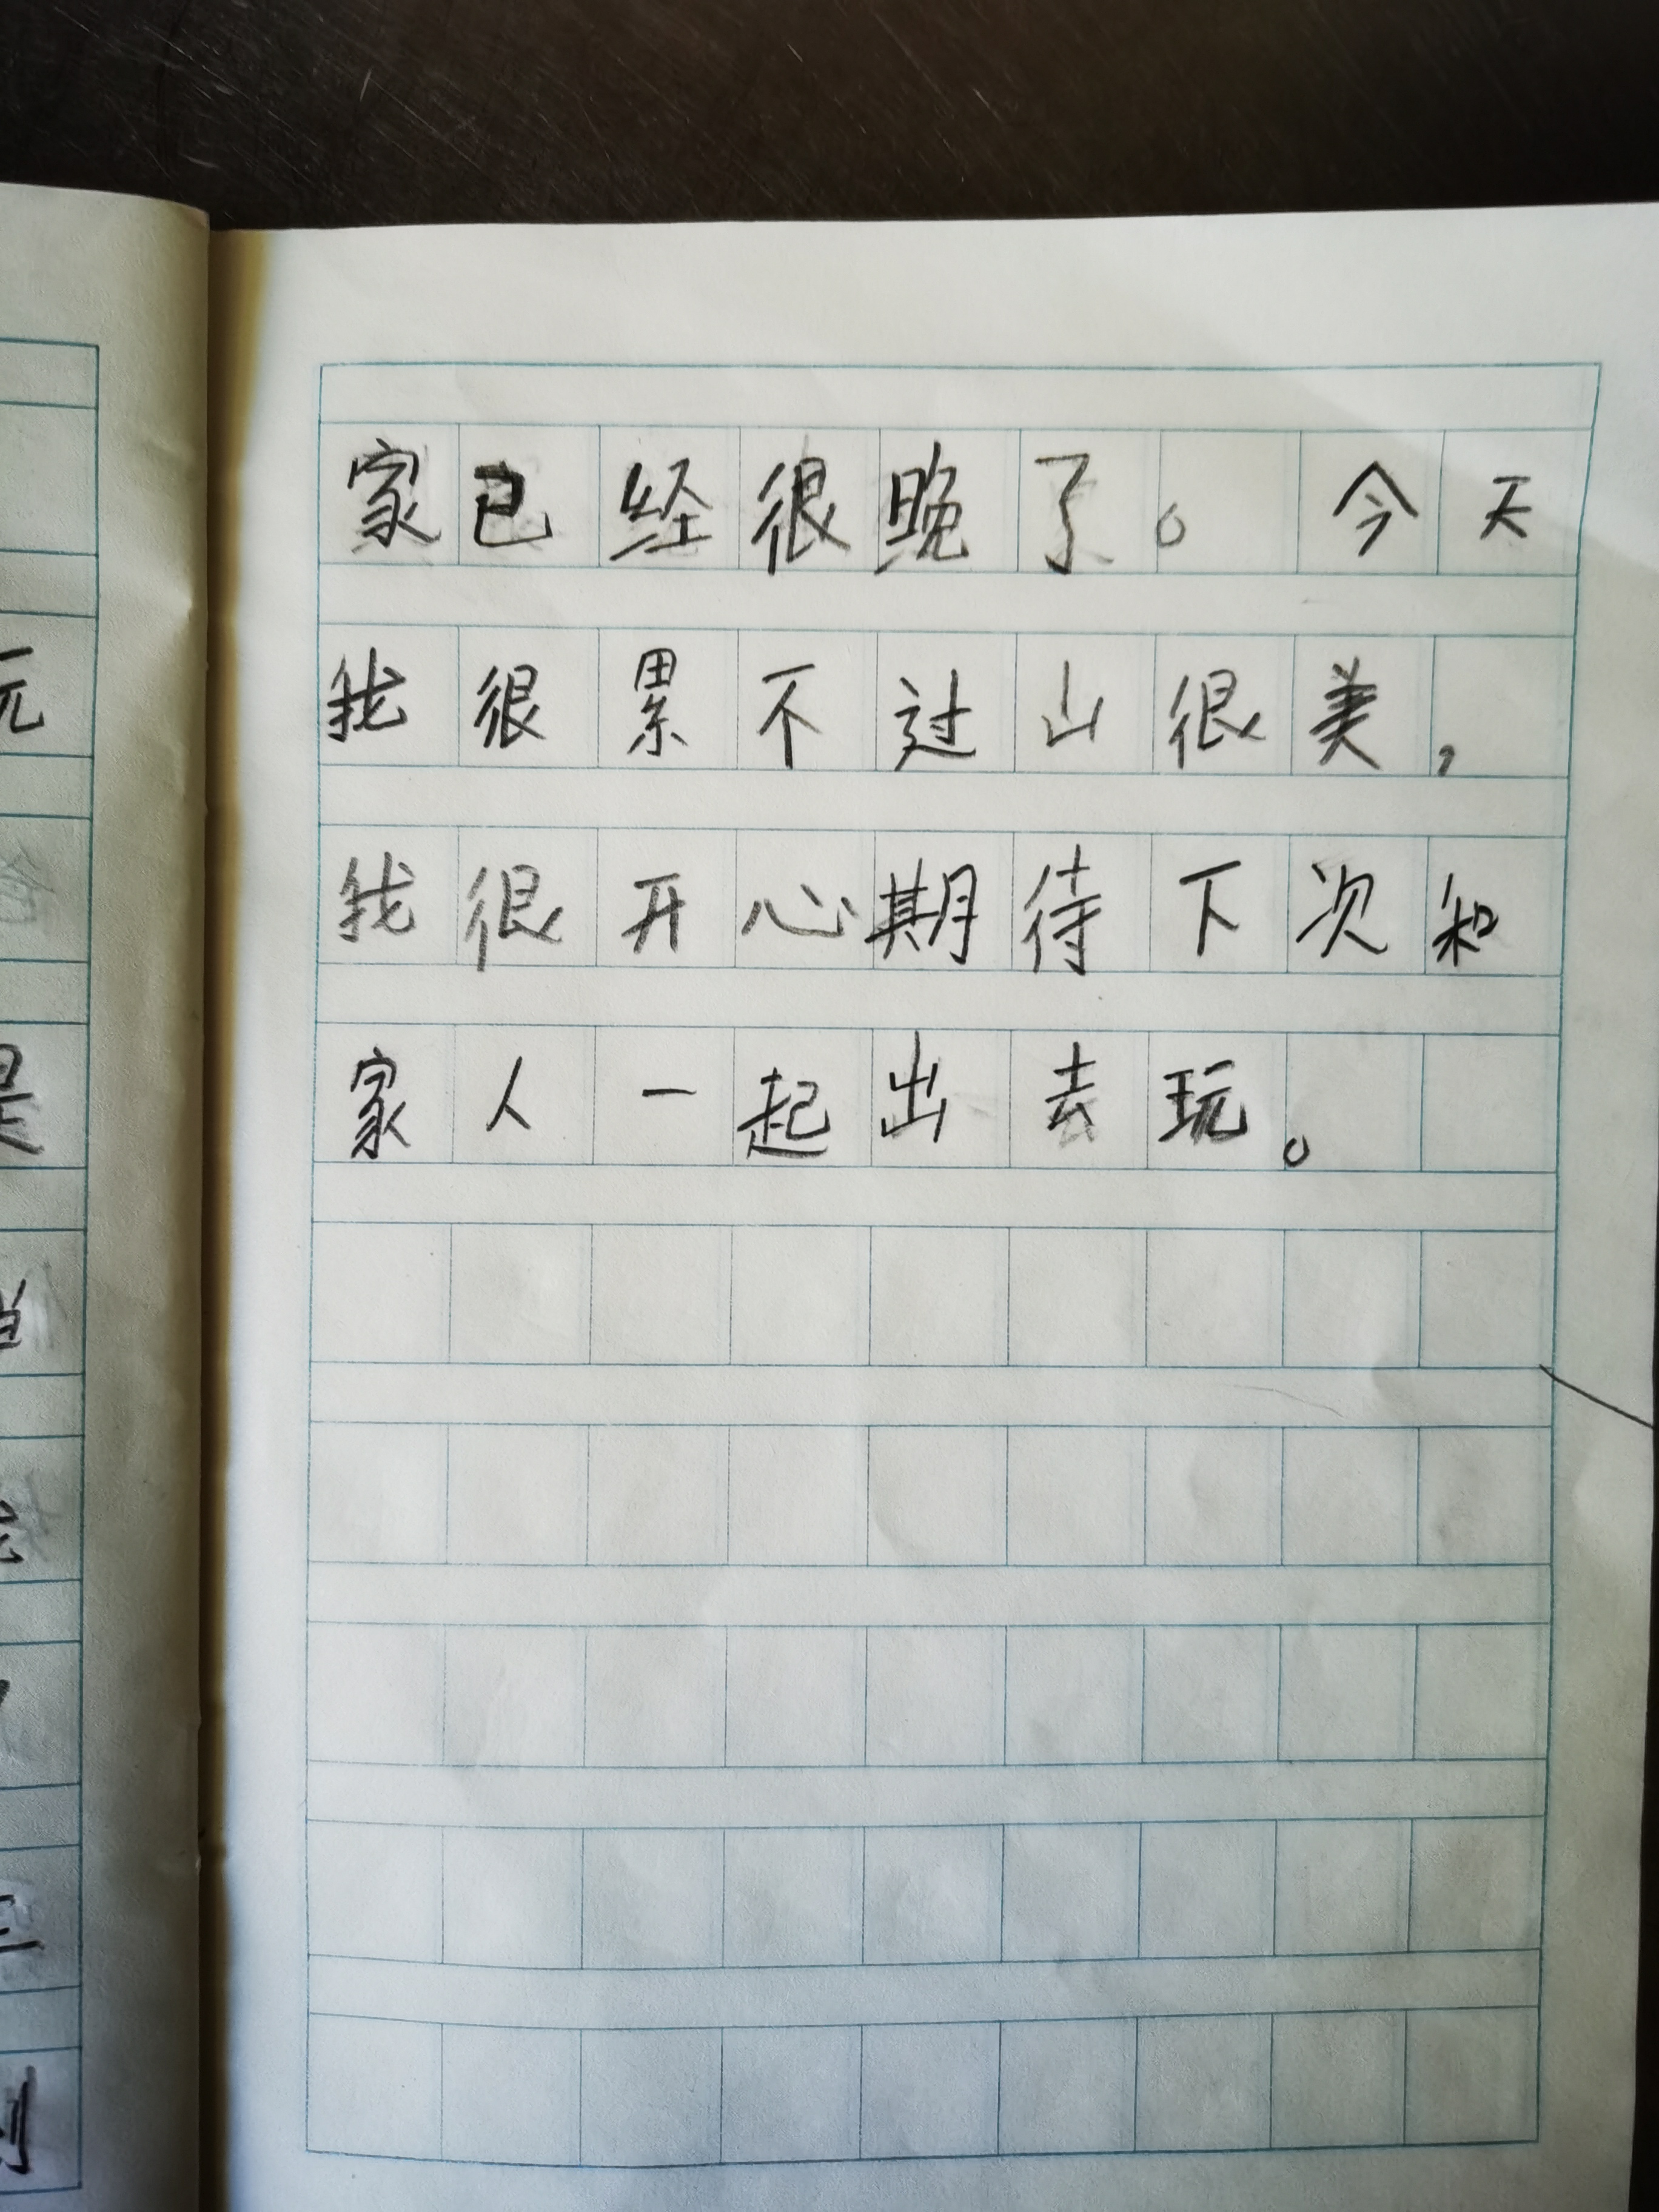 家已经很晚了。今天
我很累不过山很美，
我很开心期待下次和
家人一起出去玩。